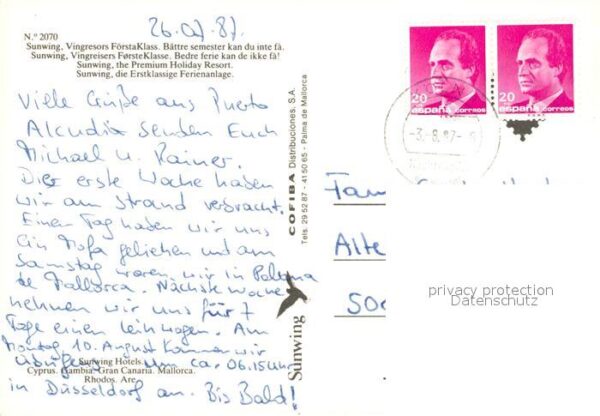 26.07.87.
N.º 2070
Sunwing, Vingresors FörstaKlass. Bättre semester kan du inte få.
Sunwing, Vingreisers FørsteKlasse. Bedre ferie kan de ikke få!
Sunwing, the Premium Holiday Resort.
Sunwing, die Erstklassige Ferienanlage.
Viele Grüße aus Puerto
Alcudia senden Euch
Michael u. Rainer.
Die erste Woche haben
wir am Strand verbracht.
Einen Tag haben wir uns
ein Mofa geliehen und am
Samstag waren wir in Palma
de Mallorca. Nächste Woche
nehmen wir uns für 7
Tage einen Leihwagen. Am
Montag 10. August kommen wir
übrigens um ca. 06.15 Uhr
in Düsseldorf an. Bis Bald!
Sunwing Hotels.
Cyprus. Gambia. Gran Canaria. Mallorca.
Rhodos. Are.
COFIBA Distribuciones, S.A.
Tels. 29 52 87 - 41 50 65 - Palma de Mallorca
Sunwing
20
españa correos
20
españa correos
-3.-8.87
Fam
Alte
500
privacy protection
Datenschutz